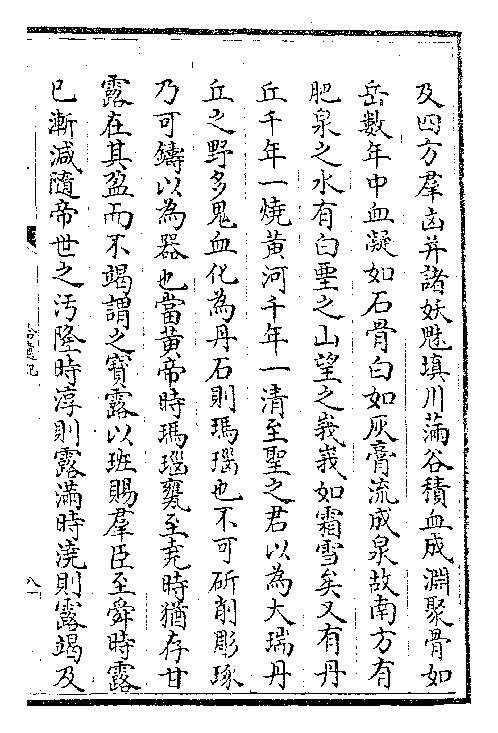 及四方羣凶并諸妖魅填川滿谷積血成淵聚骨如
岳數年中血凝如石骨白如灰膏流成泉故南方有
肥泉之水有白堊之山望之峩峩如霜雪矣又有丹
丘千年一燒黃河千年一清至聖之君以為大瑞丹
丘之野多鬼血化為丹石則瑪瑙也不可斫削彫琢
乃可鑄以為器也當黃帝時瑪瑙甕至堯時猶存甘
露在其盈而不竭謂之寶露以班賜羣臣至舜時露
已漸減隨帝世之汚隆時淳則露滿時澆則露竭及
拾遺記
八